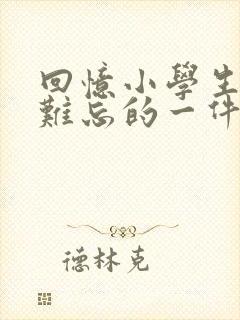 回憶小學生
難忘的一件
德林克